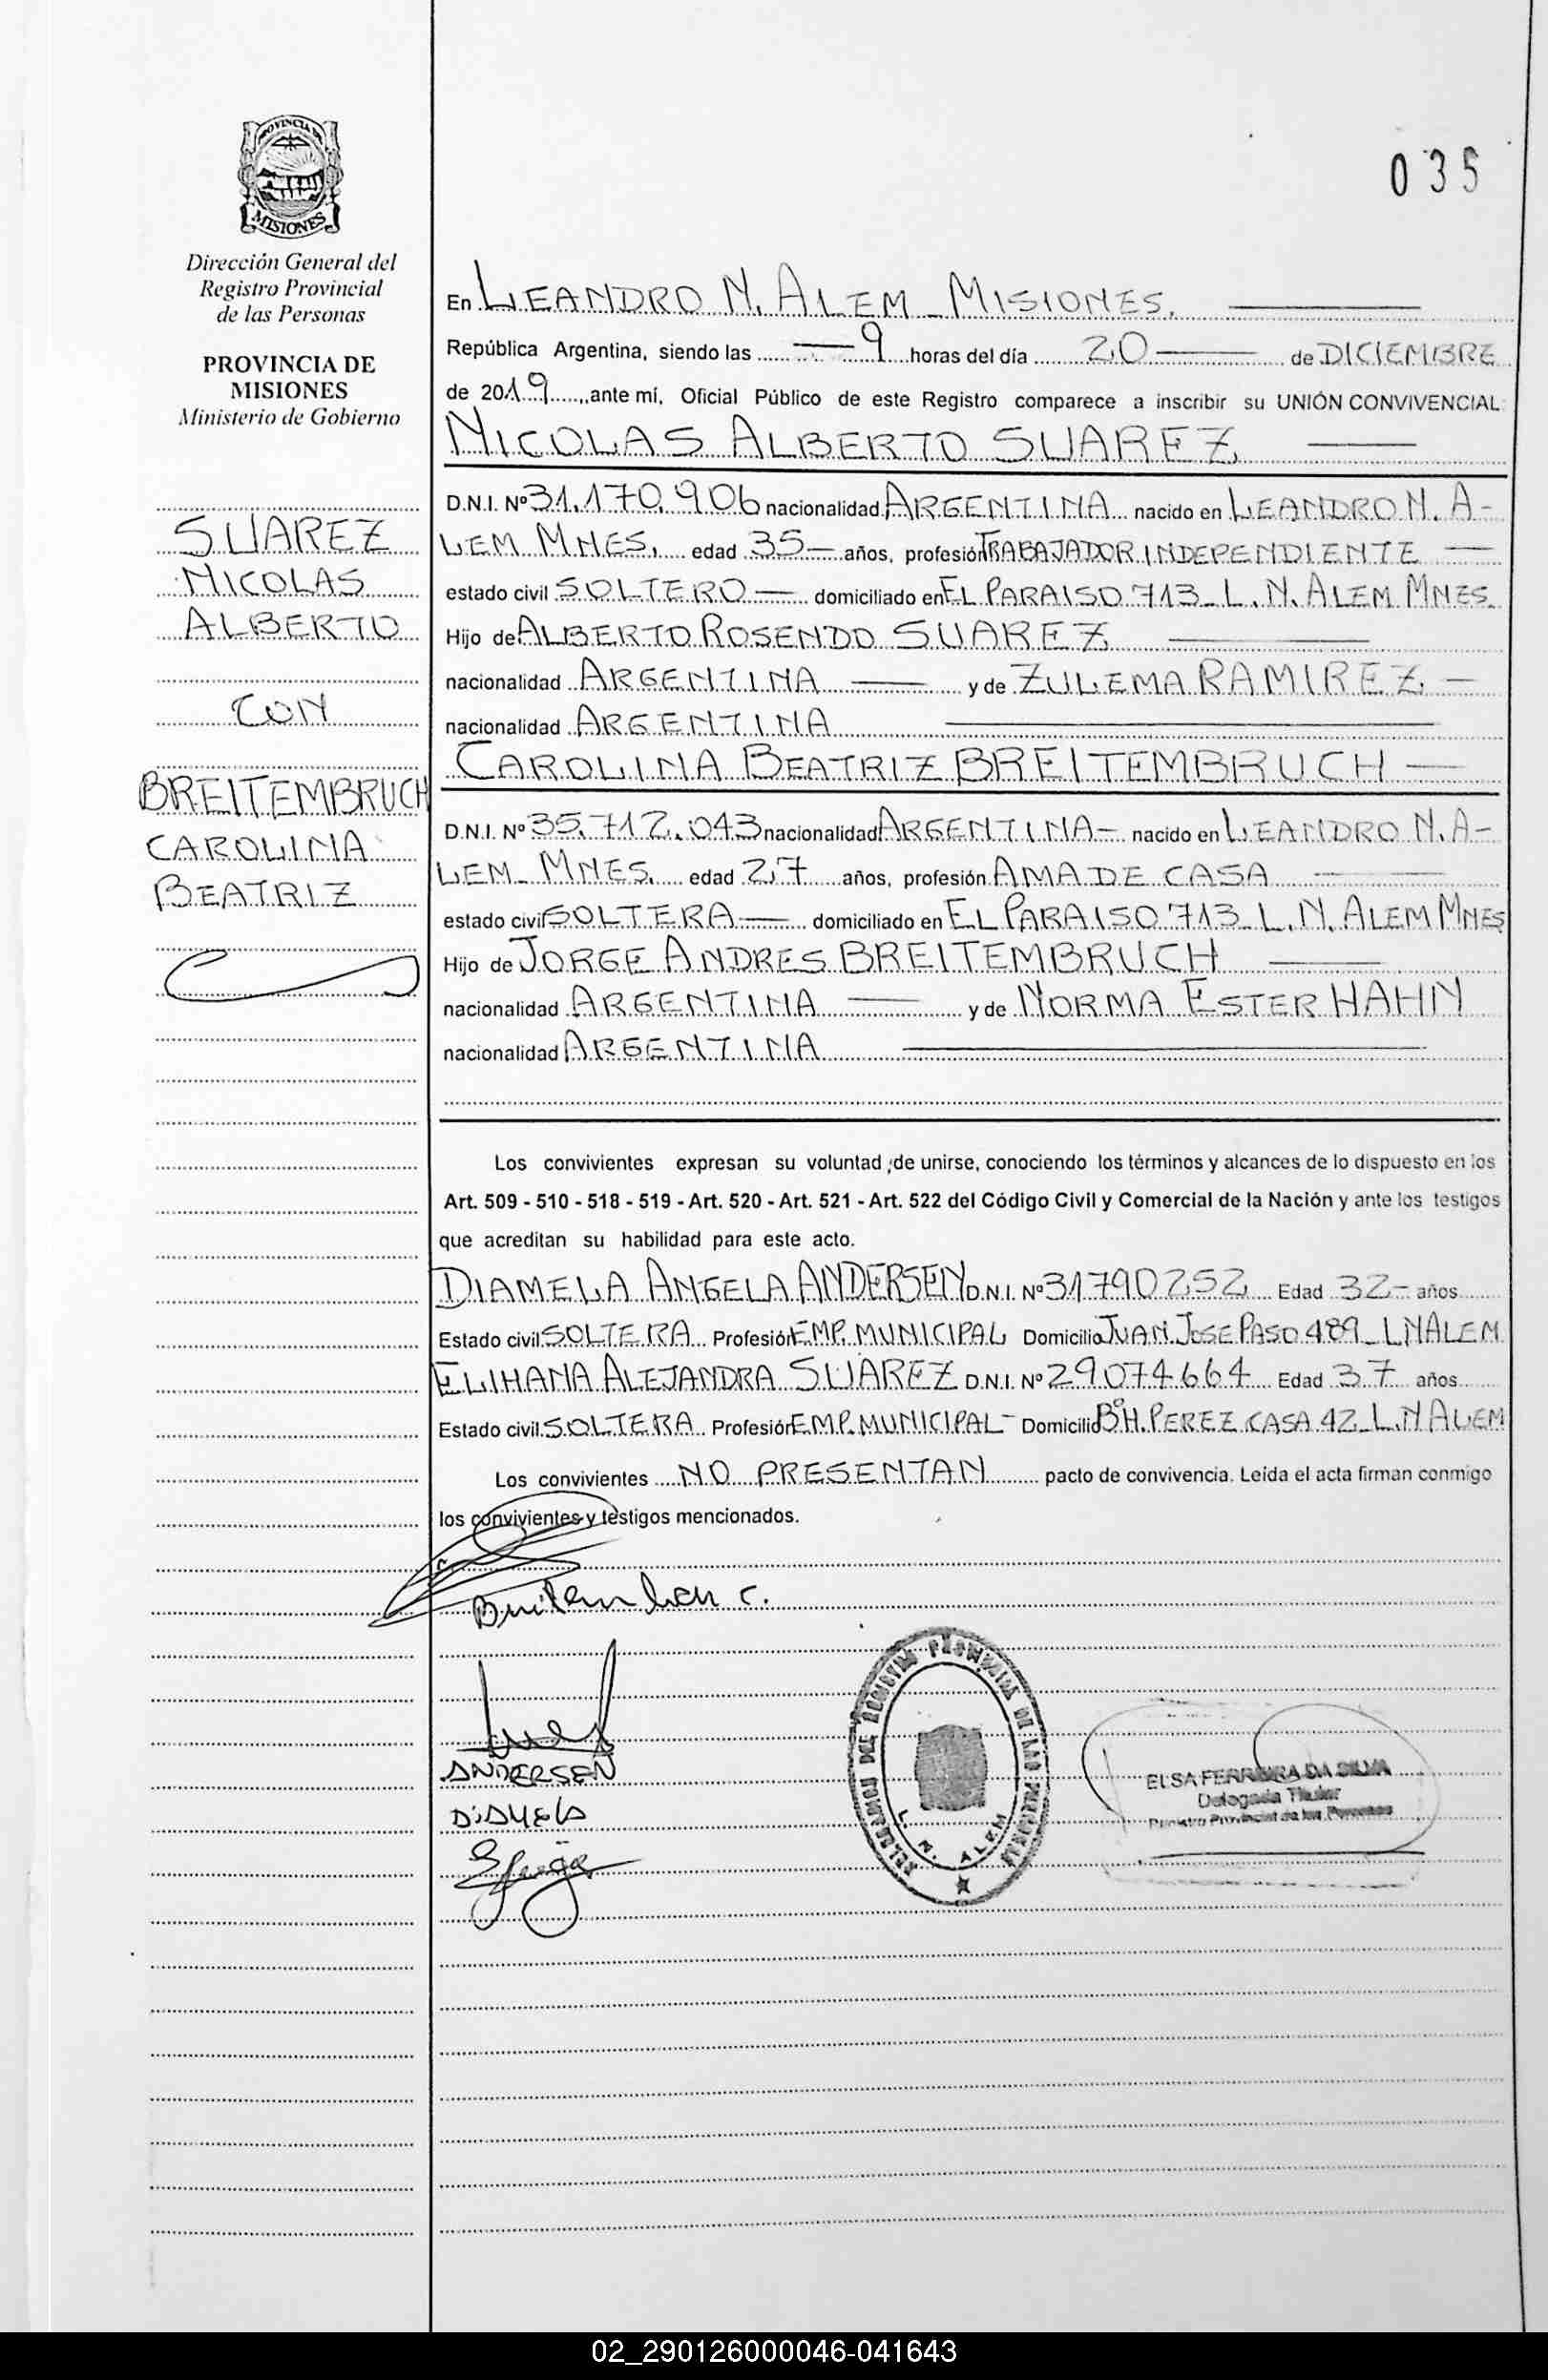 PROVINCIA DE
MISIONES
Dirección General del
Registro Provincial
de las Personas
PROVINCIA DE
MISIONES
Ministerio de Gobierno
SUAREZ
NICOLAS
ALBERTO
CON
BREITEMBRUCH
CAROLINA
BEATRIZ
035
En LEANDRO N. ALEM - MISIONES.
República Argentina, siendo las 9 horas del día 20 de DICIEMBRE
de 2019, ante mí, Oficial Público de este Registro comparece a inscribir su UNIÓN CONVIVENCIAL:
NICOLAS ALBERTO SUAREZ
D.N.I. Nº 31.170.906 nacionalidad ARGENTINA nacido en LEANDRO N. A-
LEM MNES. edad 35 años, profesión TRABAJADOR INDEPENDIENTE
estado civil SOLTERO domiciliado en EL PARAISO 713 - L. N. ALEM MNES.
Hijo de ALBERTO ROSENDO SUAREZ
nacionalidad ARGENTINA y de ZULEMA RAMIREZ
nacionalidad ARGENTINA
CAROLINA BEATRIZ BREITEMBRUCH
D.N.I. Nº 35.712.043 nacionalidad ARGENTINA nacido en LEANDRO N. A-
LEM - MNES. edad 27 años, profesión AMA DE CASA
estado civil SOLTERA domiciliado en EL PARAISO 713 - L. N. ALEM MNES
Hijo de JORGE ANDRES BREITEMBRUCH
nacionalidad ARGENTINA y de NORMA ESTER HAHN
nacionalidad ARGENTINA
Los convivientes expresan su voluntad de unirse, conociendo los términos y alcances de lo dispuesto en los
Art. 509 - 510 - 518 - 519 - Art. 520 - Art. 521 - Art. 522 del Código Civil y Comercial de la Nación y ante los testigos
que acreditan su habilidad para este acto.
DIAMELA ANGELA ANDERSEN D.N.I. Nº 31790252 Edad 32 años
Estado civil SOLTERA Profesión EMP. MUNICIPAL Domicilio JUAN JOSE PASO 489 - L N ALEM
ELIHANA ALEJANDRA SUAREZ D.N.I. Nº 29074664 Edad 37 años
Estado civil SOLTERA Profesión EMP. MUNICIPAL - Domicilio Bº H. PEREZ CASA 42 - L. N ALEM
Los convivientes NO PRESENTAN pacto de convivencia. Leída el acta firman conmigo
los convivientes y testigos mencionados.
ANDERSEN
DIAMELA
L. N. ALEM
ELSA FERREIRA DA SILVA
Delegada Titular
Registro Provincial de las Personas
02_290126000046-041643